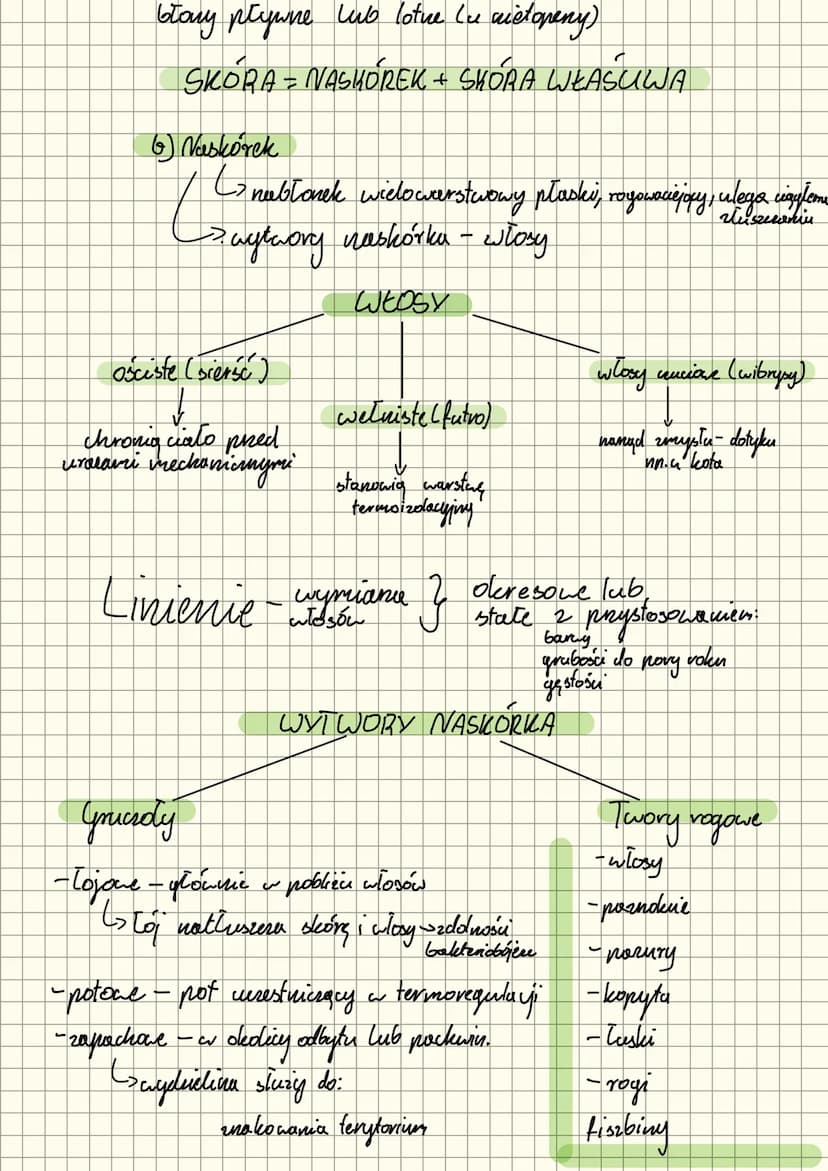 błony pływne lub lotne (u nietoperzy)
SKÓRA = NASKÓREK + SKÓRA WŁAŚCIWA
b) Naskórek
↳ nabłonek wielowarstwowy płaski, rogowaciejący, ulega ciągłemu
złuszczaniu
↳ wytwory naskórka - włosy
WŁOSY
ościste (sierść)
włosy czuciowe (wibrysy)
wełniste (futro)
chronią ciało przed
urazami mechanicznymi
narząd zmysłu - dotyku
np. u kota
stanowią warstwę
termoizolacyjną
Linienie - wymiana włosów } okresowe lub
stałe z przystosowaniem:
barwy
grubości do pory roku
gęstości
WYTWORY NASKÓRKA
Gruczoły
Twory rogowe
- łojowe - głównie w pobliżu włosów
↳ łój natłuszcza skórę i włosy → zdolności
bakteriobójcze
- potowe - pot uczestniczący w termoregulacji
- zapachowe - w okolicy odbytu lub pachwin.
↳ wydzielina służy do:
znakowania terytorium
- włosy
- paznokcie
- pazury
- kopyta
- łuski
- rogi
fiszbiny